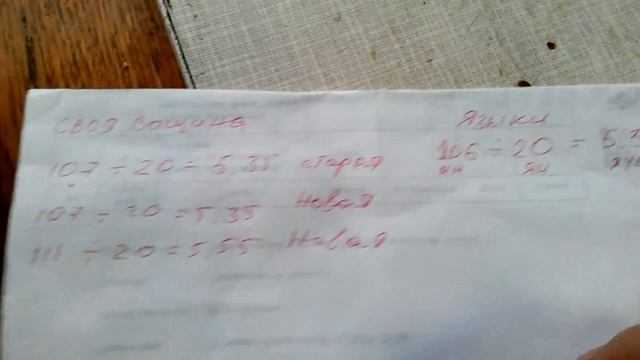 своя вощина
107 ÷ 20 = 5,35 старая
107 ÷ 20 = 5,35 Новая
111 ÷ 20 = 5,55 Новая
Языки
106 ÷ 20 = 5,3
яч